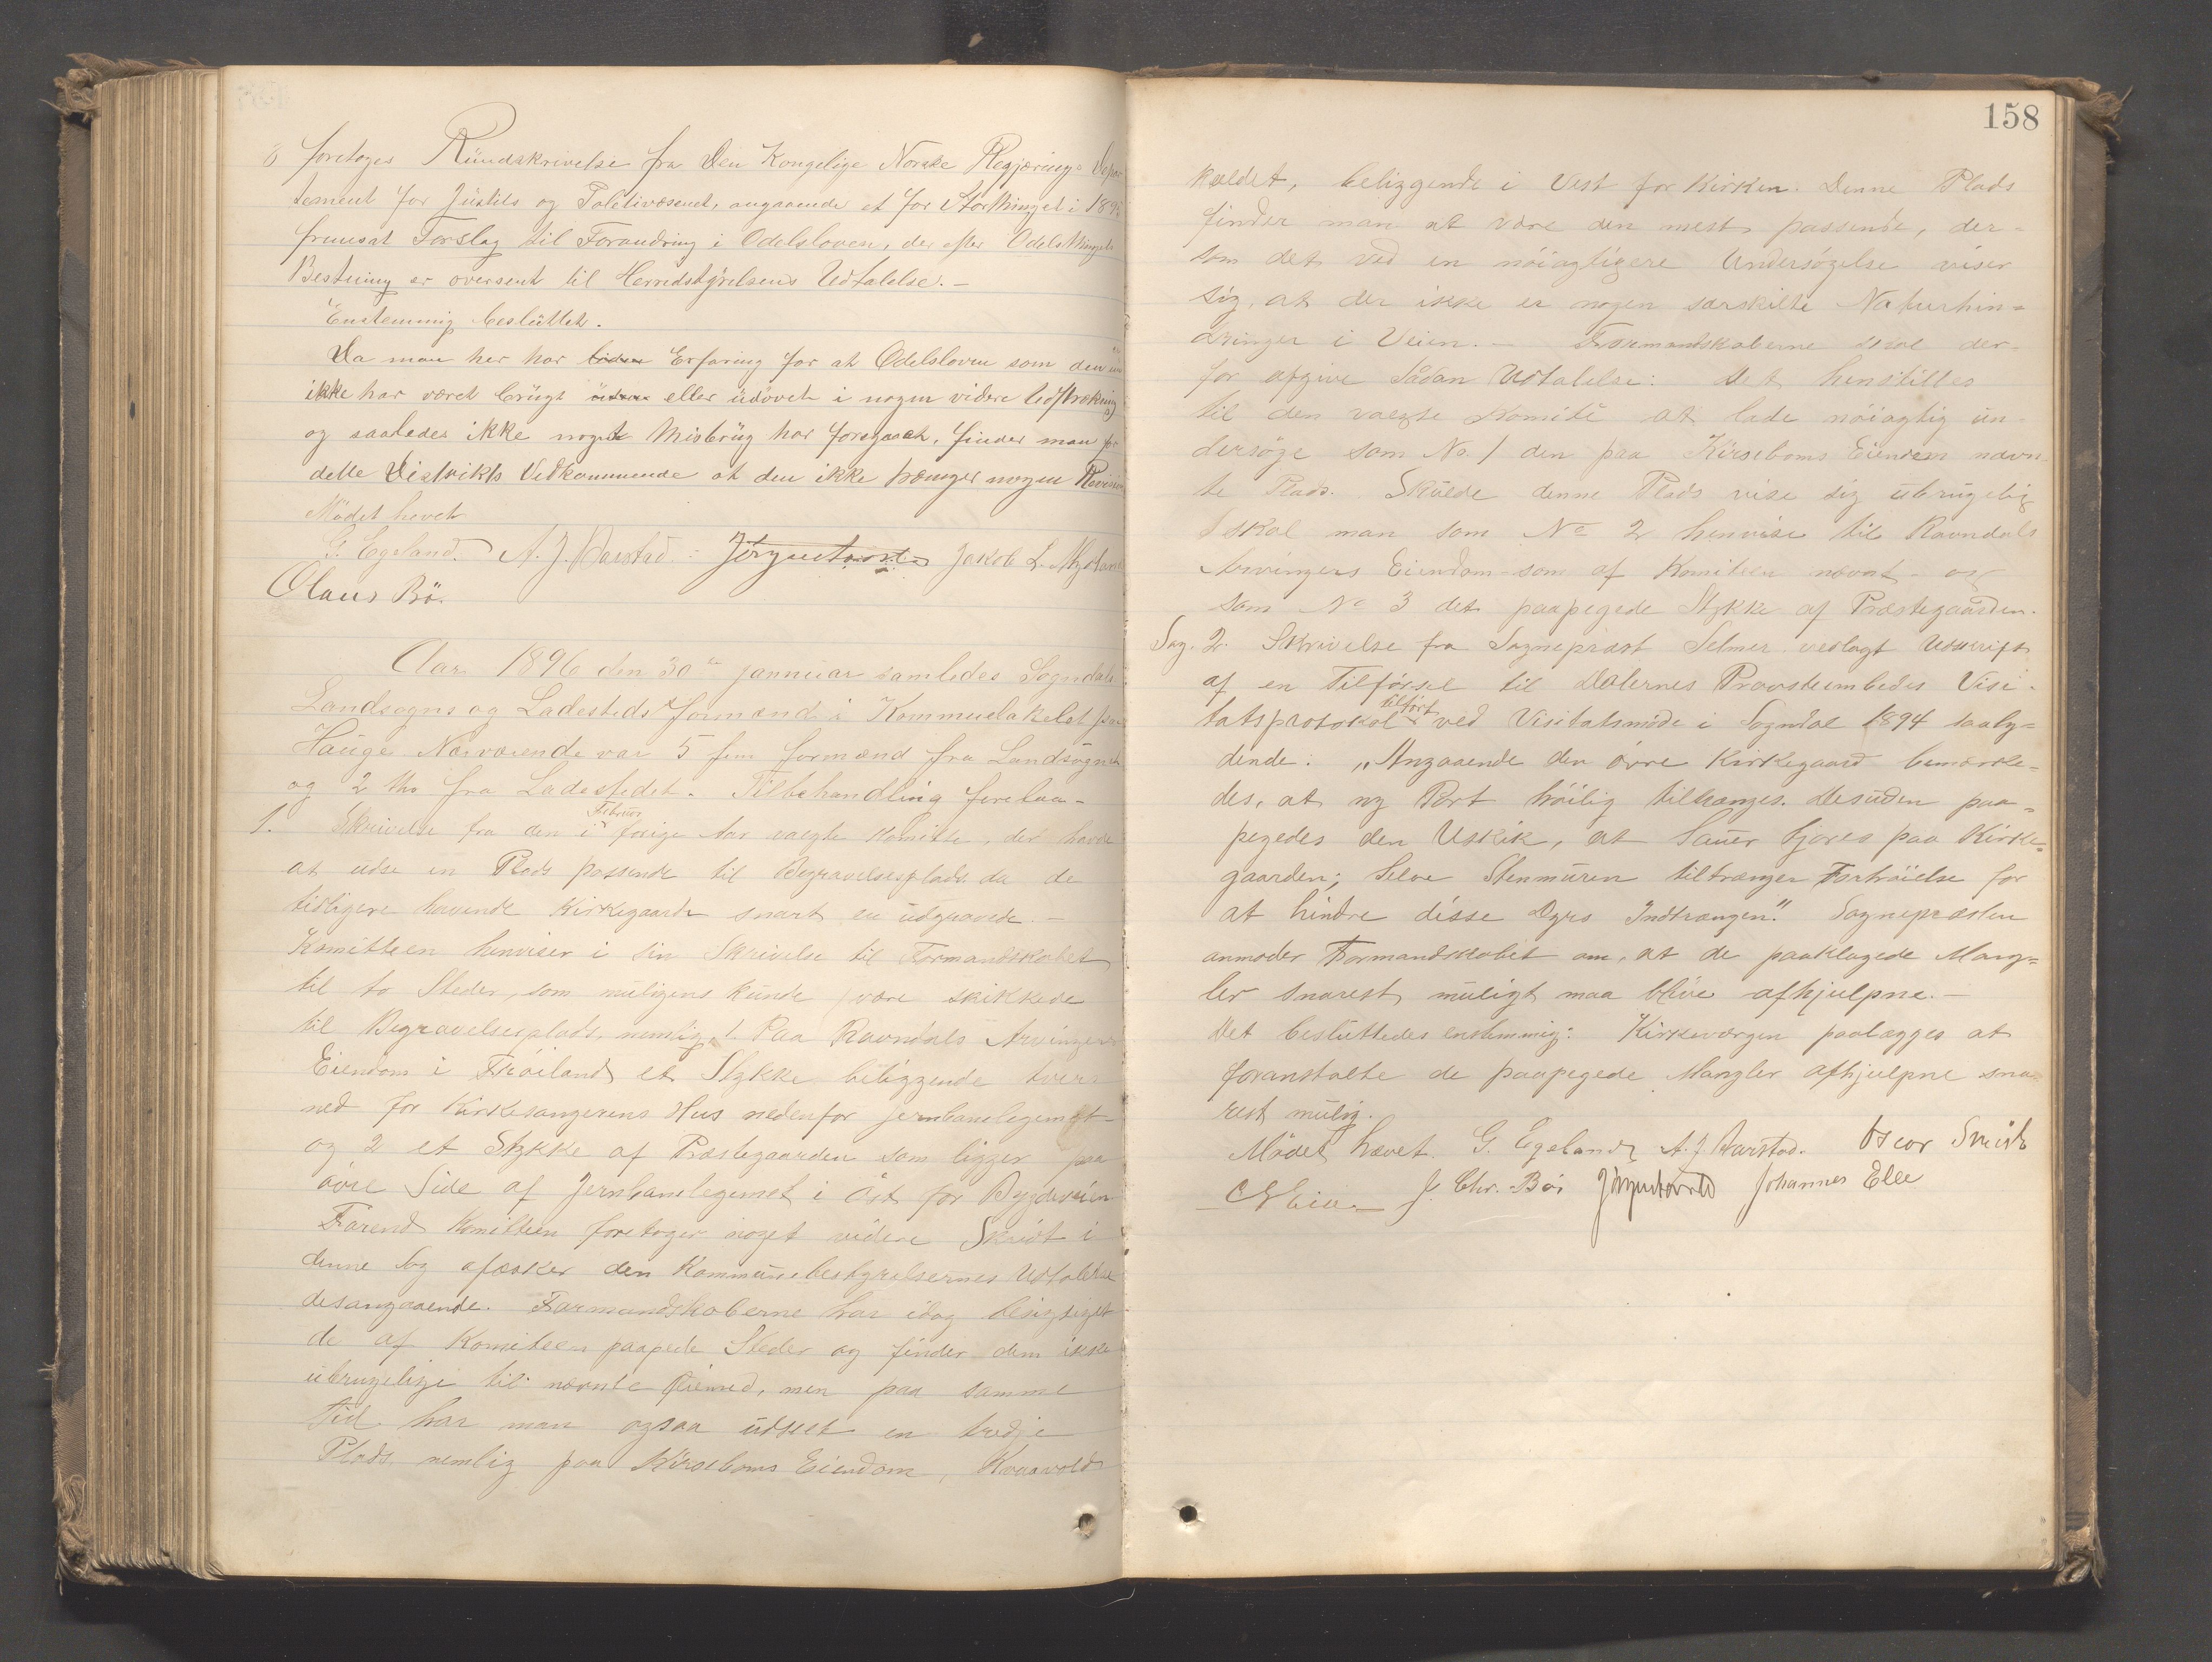 foretoges Rundskrivelse fra Den Kongelige Norske Regjerings Depar
tement for Justits og Politivæsenet, angaaende et for Storthinget i 1895
fremsat Forslag til Forandring i Odelsloven, der efter Odelsthingets
Bestemmig er oversent til Herredstyrelsens Udtalelse. -
Enstemmig besluttet.
Da man her har liden Erfaring for at Odelsloven som den nu
ikke har været brugt eller udövet i nogen videre Udstrækning
og saaledes ikke noget Misbrug har foregaaet, finder man for
dette Distrikts Vedkommende at den ikke trænger nogen Revision
Mödet hevet
G. Egeland. A. J. Aarstad. Jörgentveit Jakob L. Mydland
Olaus Bö.
Aar 1896 den 30te jannuar samledes Sogndals
Landsogns og Ladesteds formænd i Kommuelokalet paa
Hauge Nærværende var 5 fem formænd fra Landsognet
og 2 tho fra Ladestedet. Til behandling forelaa-
1. Skrivelse fra den i Februar forige Aar valgte Komitte, der havde
at udse en Plads passende til Begravelsesplads da de
tidligere havende Kirkegaarde snart er udgravede. -
Komitteen henviser i sin Skrivelse til Formandskabet
til to Steder, som muligens kunde være skikkede
til Begravelsesplads, nemlig 1. Paa Ravndals Arvingers
Eiendom i Fröiland et Stykke beliggende tvers
ned for Kirkesangerens Hus nedenfor jernbanelegemet -
og 2 et Stykke af Præstegaarden som ligger paa
övre Side af Jernbanelegemet i Öst for Bygdeveien
Förend Komitteen foretager noget videre Skridt i
denne Sag afæsker den Kommunebestyrelsernes Udtalelse
desangaaende. Formandskaberne har idag besigtiget
de af Komiteen paapede Steder og finder dem ikke
ubrugelige til nævnte Öiemed, men paa samme
Tid har man ogsaa udseet en tredje
Plads nemlig paa Kirseboms Eiendom, Kvavold
158
kaldet, beliggende i Vest for Kirken. Denne Plads
finder man at være den mest passende, der=
som det ved en nöiagtigere Undersögelse viser
sig, at der ikke er nogen særskilte Naturhin=
dringer i Veien. - Formandskaberne skal der-
for afgive sådan Udtalelse: Det henstilles
til den valgte Komité at lade nöiagtig un
dersöge som No 1 den paa Kirseboms Eiendom nævn
te Plads. Skulde denne Plads vise sig ubrugelig
skal man som No 2 henvise til Ravndals
Arvingers Eiendom - som af Komiteen nævnt - og
som No 3 det paapegede Stykke af Præstegaarden.
Sag. 2. Skrivelse fra Sognepræst Selmer vedlagt Udskrift
af en Tilförsel til Dalernes Provsteembedes Visi-
tatsprotokol tilfört ved Visitatsmöde i Sogndal 1894 saaly=
dende: „Angaaende den övre Kirkegaard bemærke=
des, at ny Port höilig tiltrænges. Desuden paa=
pegedes den Uskik, at Sauer gjores paa Kirke=
gaarden; Selve Stenmuren tiltrænger Forhöielse for
at hindre disse Dyrs Indtrængen." Sognepræsten
anmoder Formandskabet om, at de paaklagede Mang=
ler snarest muligt maa blive afhjulpne. -
Det besluttedes enstemmig: Kirkeværgen paalægges at
foranstalte de paapegede Mangler afhjulpne sna
rest mulig.
Mödet hævet. G. Egeland A. J. Aarstad. Oscar Smith
J. Chr. Böi Jörgentveit Johannes Elle